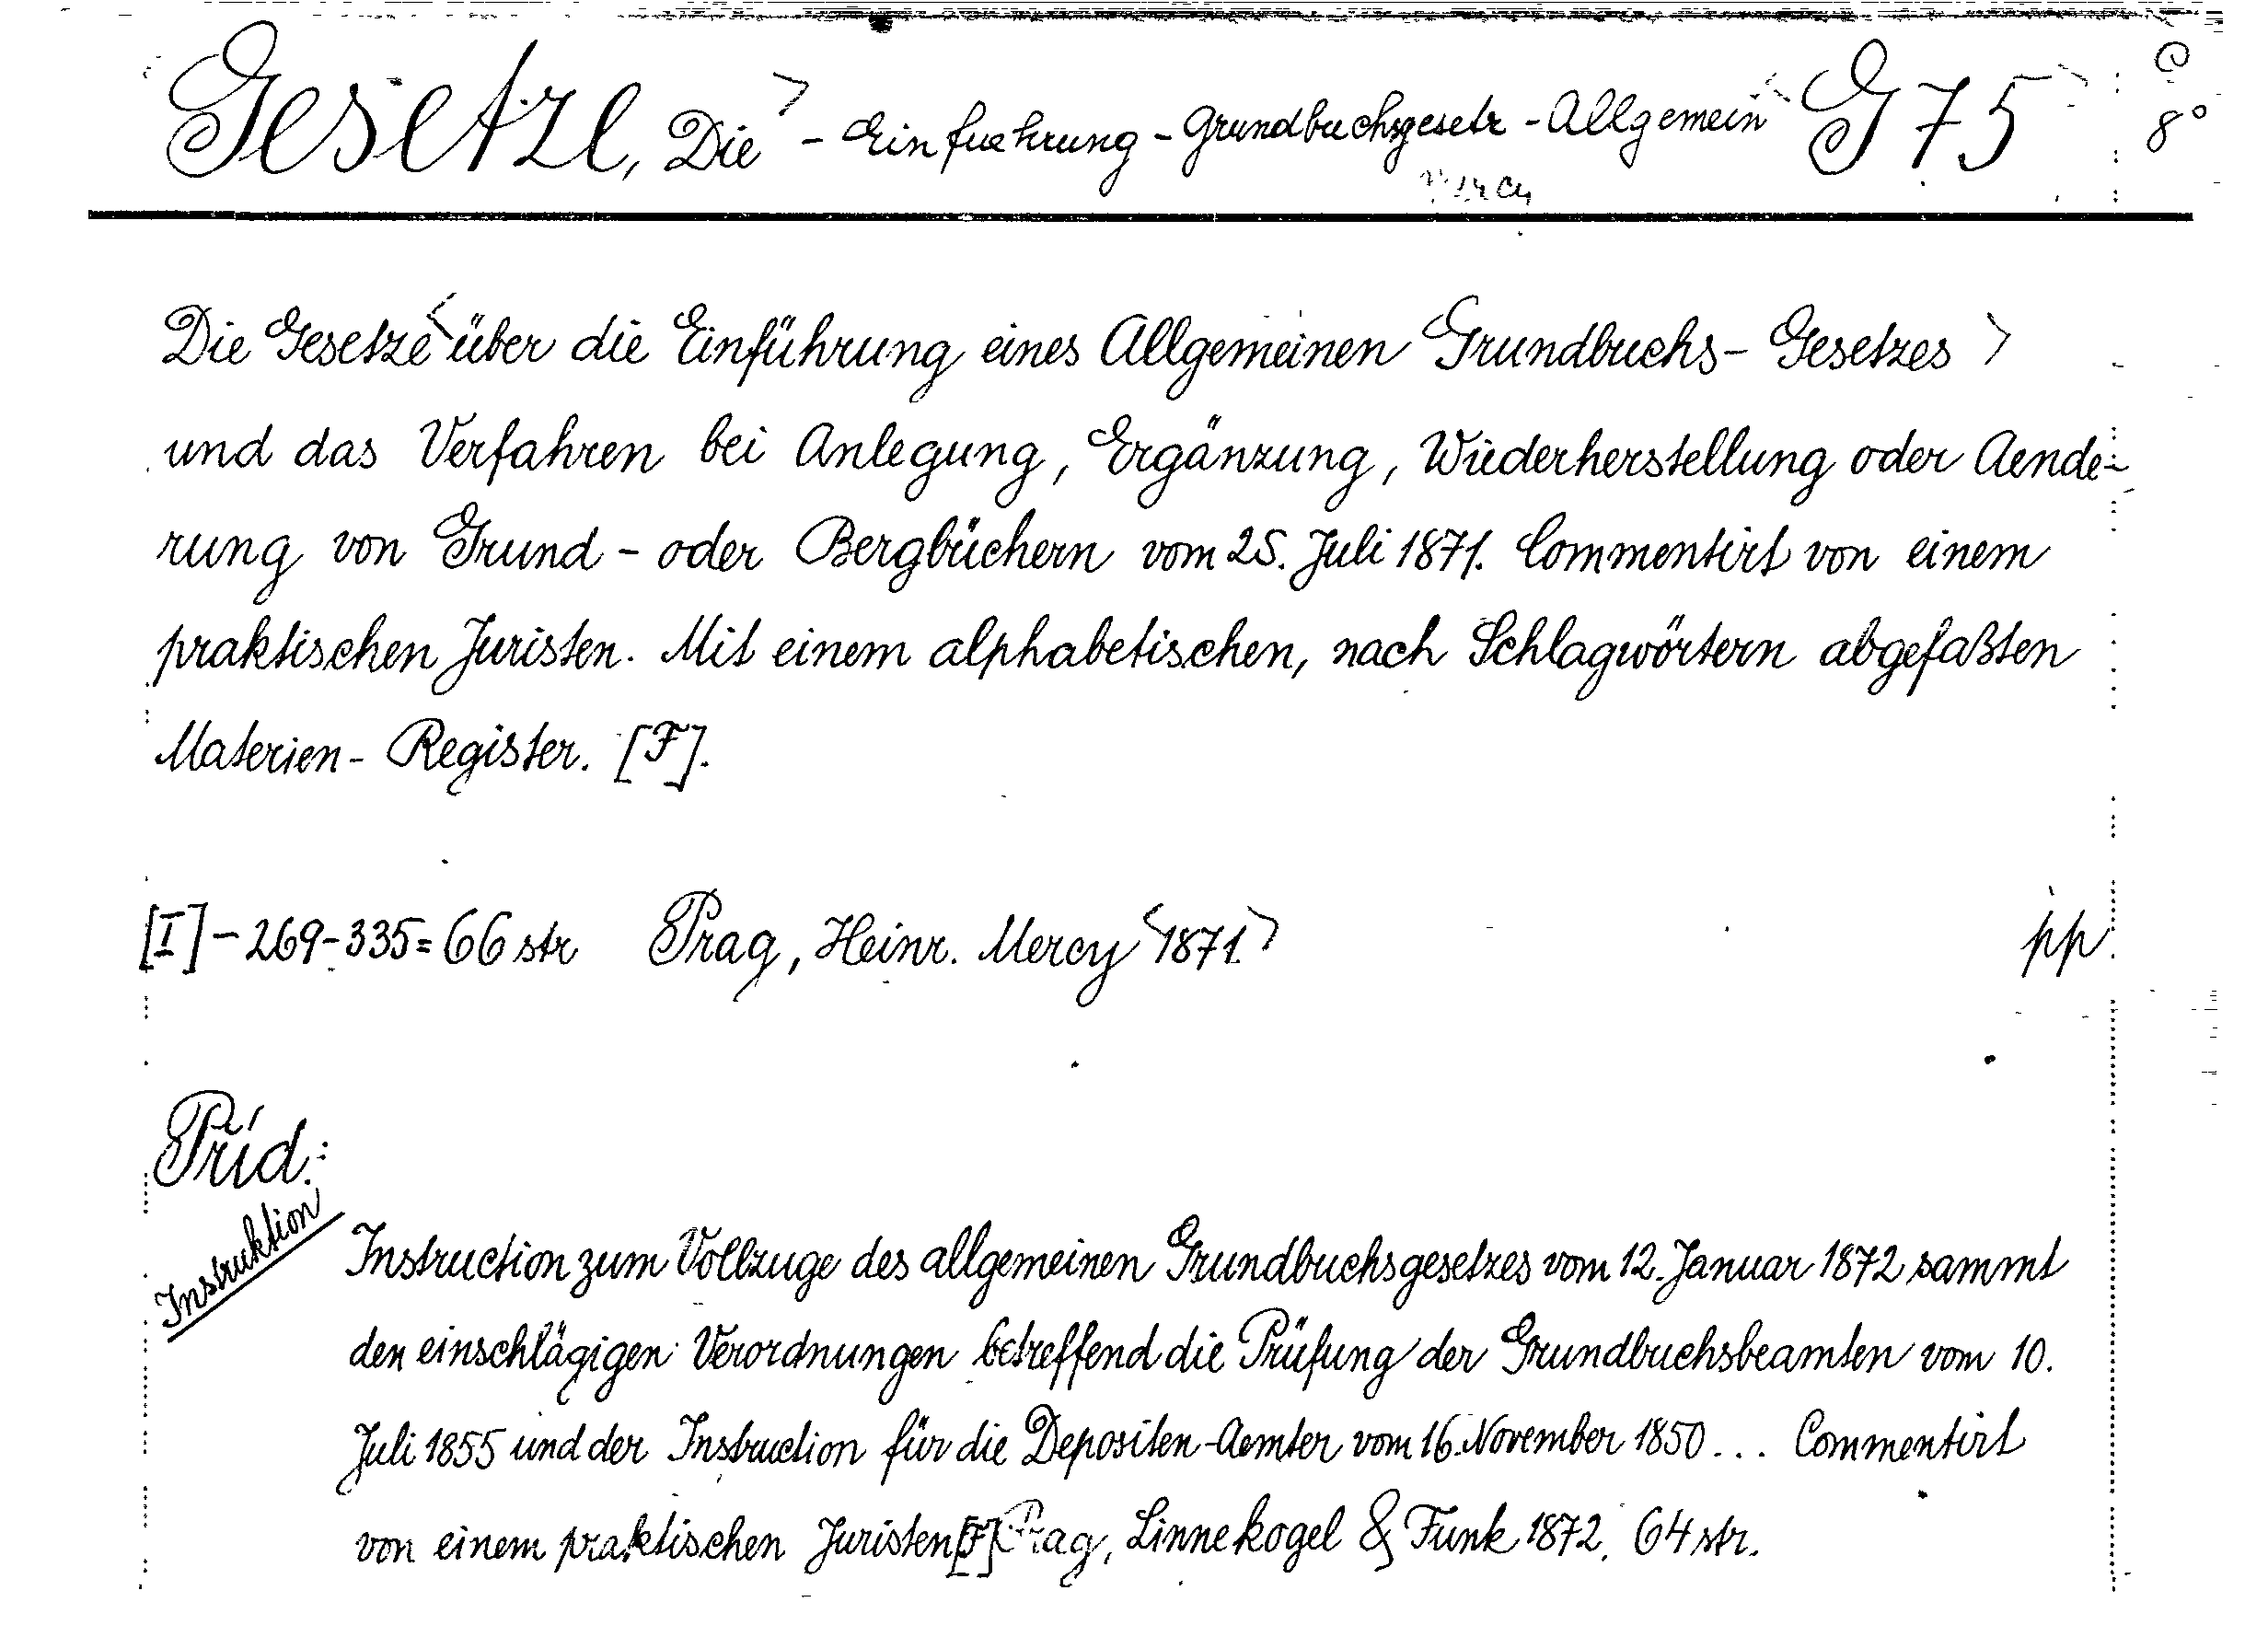 Gesetze, Die - Einfuehrung - Grundbuchsgesetz - Allgemein G 75
8°
Die Gesetze über die Einführung eines Allgemeinen Grundbuchs- Gesetzes
und das Verfahren bei Anlegung, Ergänzung, Wiederherstellung oder Aende-
rung von Grund - oder Bergbüchern vom 25. Juli 1871. Commentirt von einem
praktischen Juristen. Mit einem alphabetischen, nach Schlagwörtern abgefaßten
Materien - Register. [F].
[I] - 269-335 = 66 str Prag, Heinr. Mercy 1871. pp.
Příd.:
Instruktion
Instruction zum Vollzuge des allgemeinen Grundbuchsgesetzes vom 12. Januar 1872 sammt
den einschlägigen Verordnungen betreffend die Prüfung der Grundbuchsbeamten vom 10.
Juli 1855 und der Instruction für die Depositen-Aemter vom 16. November 1850... Commentirt
von einem praktischen Juristen [F]. Prag, Linnekogel & Funk 1872. 64 str.